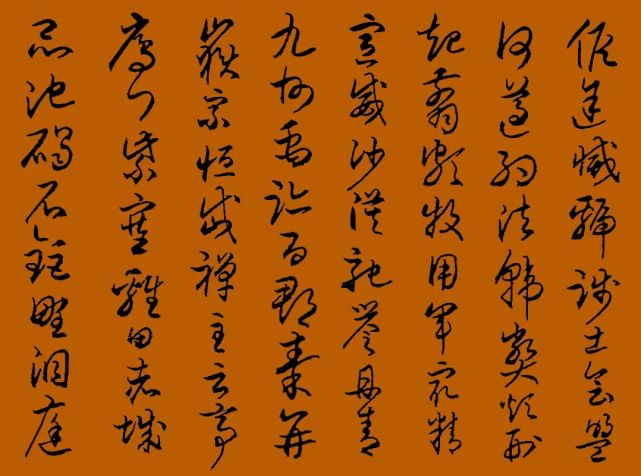 假途滅虢踐土會盟
何遵約法韓弊煩刑
起翦頗牧用軍最精
宣威沙漠馳譽丹青
九州禹跡百郡秦并
嶽宗恒岱禪主云亭
雁門紫塞雞田赤城
昆池碣石鉅野洞庭